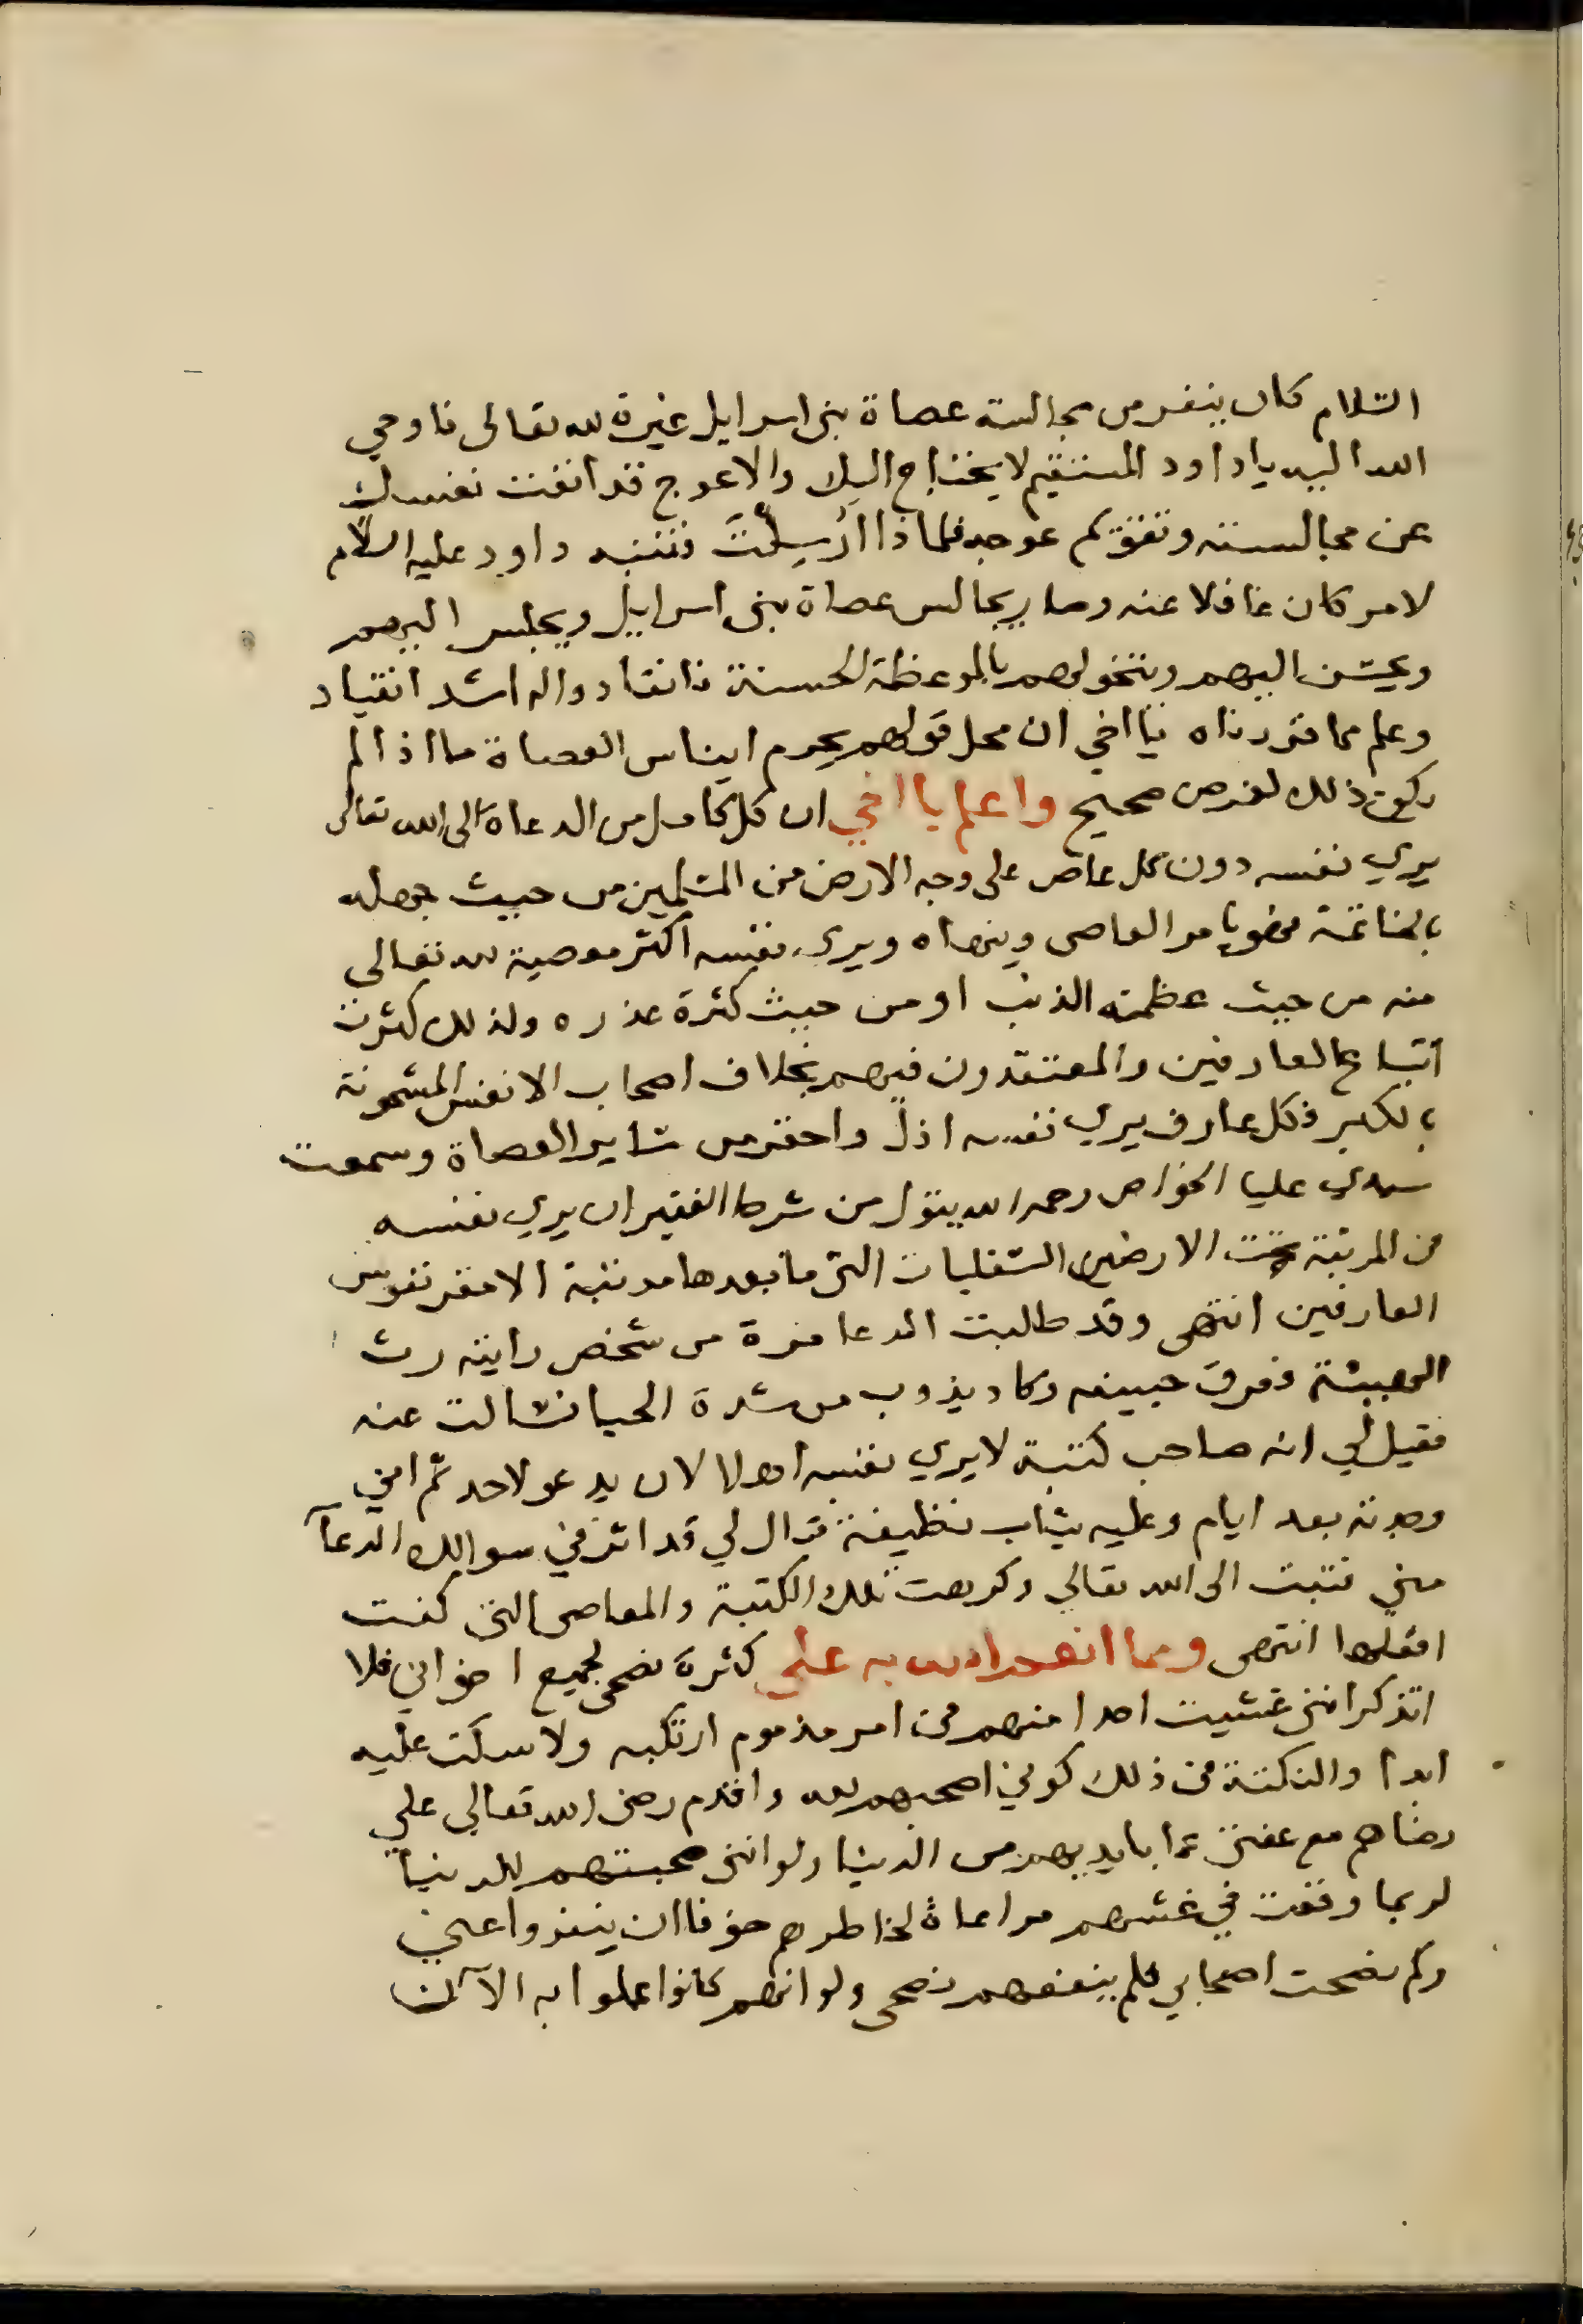 السلام كان ينفر من مجالسة عصاة بنى اسرايل غيرة لله تعالى فاوحي
الله اليه يا داود المستقيم لا يحتاج اليك والاعوج قد انفت نفسك
عن مجالسته وتقويم عوجه فلماذا ارسلت فتنبه داود عليه السلام
لامر كان غافلا عنه وصار يجالس عصاة بنى اسراييل ويجلس اليهم
ويحسن اليهم ويتخولهم بالموعظة الحسنة فانقادوا له اشد انقياد
وعلم مما قررناه يا اخي ان محل قولهم يحرم ايناس العصاة ما اذا لم
يكون ذلك لغرض صحيح واعلم يا اخي ان كل كامل من الدعاة الى الله تعالى
يري نفسه دون كل عاص على وجه الارض من المسلمين من حيث جهله
بالخاتمة فهو يامر العاصى وينهاه ويرى نفسه اكثر معصية لله تعالى
منه من حيث عظمة الذنب او من حيث كثرة عذره ولذلك كثرت
اتباع العارفين والمعتقدون فيهم بخلاف اصحاب الانفس المشحونة
بالكبر فكل عارف يري نفسه اذل واحقر من ساير العصاة وسمعت
سيدي عليا الخواص رحمه الله يقول من شرط الفقير ان يري نفسه
فى المرتبة تحت الارضين السفليات التى ما بعدها مرتبة الا مقر نفوس
العارفين انتهى وقد طلبت الدعا مرة من شخص رايته رث
الهيئة فعرق جبينه وكاد يذوب من شدة الحيا فسالت عنه
فقيل لي انه صاحب كتبة لا يري نفسه اهلا لان يدعو لاحد ثم اني
وجدته بعد ايام وعليه ثياب نظيفة قال لي قد اثر في سوالك الدعآ
مني فتبت الى الله تعالي وكرهت تلك الكتبة والمعاصى التى كنت
افعلها انتهى ومما انعم الله به على كثرة نصحى لجميع اخواني فلا
اتذكر اننى غشيت احدا منهم فى امر مذموم ارتكبه ولا سكت عليه
ابدا والنكتة فى ذلك كوني اصحبهم لله واقدم رضى الله تعالي علي
رضاهم مع عفتى عما بايديهم من الدنيا ولو اننى صحبتهم للدنيا
لربما وقعت في غشهم مراعاة لخاطرهم خوفا ان ينفروا عني
وكم نصحت اصحابي فلم ينفعهم نصحى ولو انهم كانوا عملوا به الآن